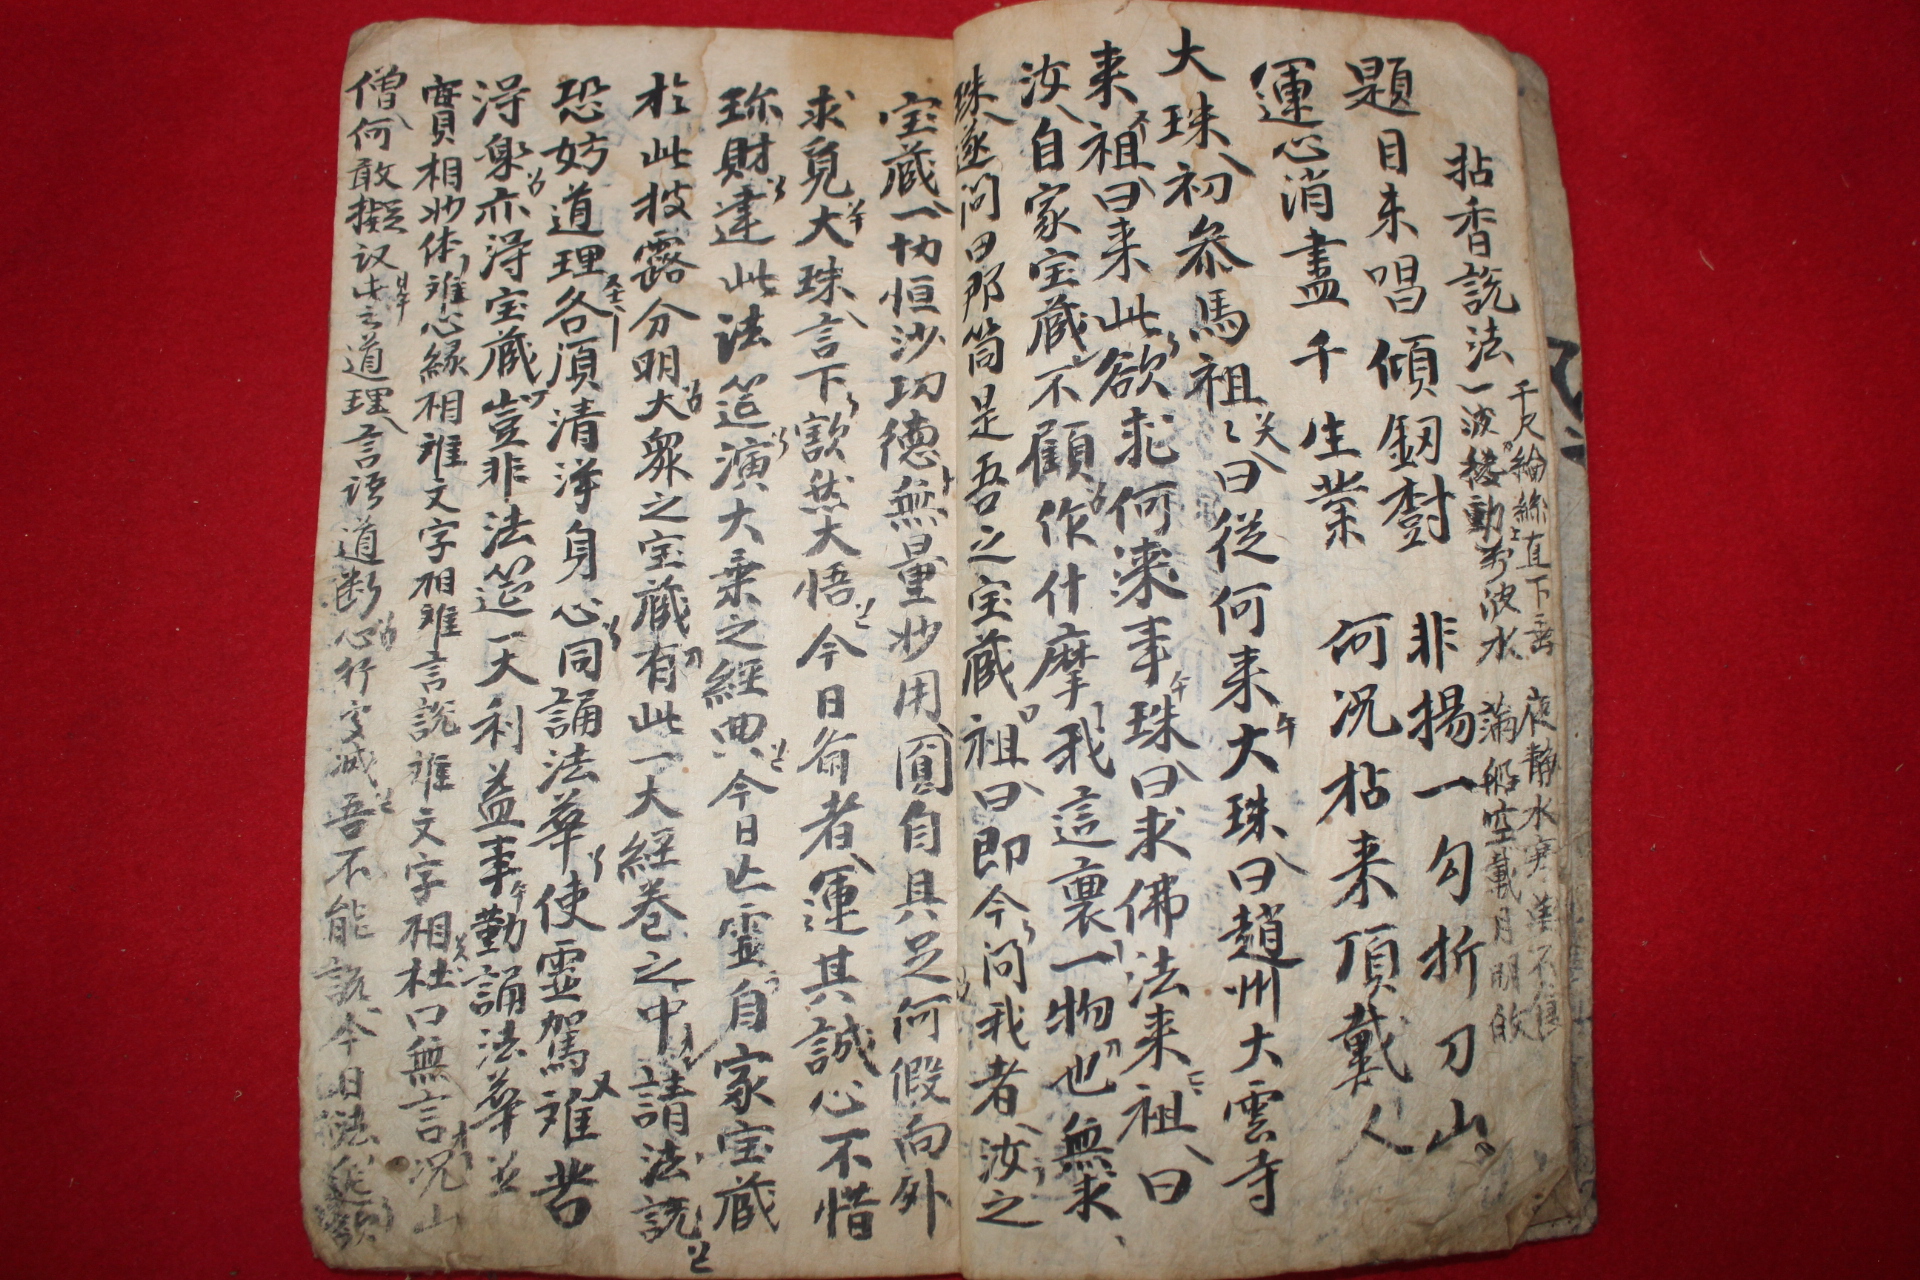 拈香說法
千尺綸絲直下垂
一波動万波水
夜靜水寒魚不食
滿船空載月明
題目未唱傾釰樹 非揚一勾折刀山
運心消盡千生業 何况拈来頂戴人
大珠初叅馬祖祖曰従何来大珠曰趙州大雲寺
来祖曰来此欲求何來事珠曰求佛法来祖曰
汝自家宝蔵不顧作什摩我這裏一物也無求
珠遂問曰那箇是吾之宝蔵祖曰即今問我者汝之
宝蔵一切恒沙功德無量妙用圓自具足何假向外
求覓大珠言下豁然大悟今日斋者運其誠心不惜
珎財建此法筵演大乗之經典今日亡靈自家宝蔵
於此披露分明大衆之宝蔵有此一大經卷之中請法說
恐妨道理各須清浄身心同誦法華使靈駕雖昔
淂樂亦淂宝蔵豈非法筵一大利益事勤誦法華並
實相妙体離心緣相離文字相離言說離文字相杜口無言况山
僧何敢擬議此道理言語道断心行处滅吾不能說今日法筵